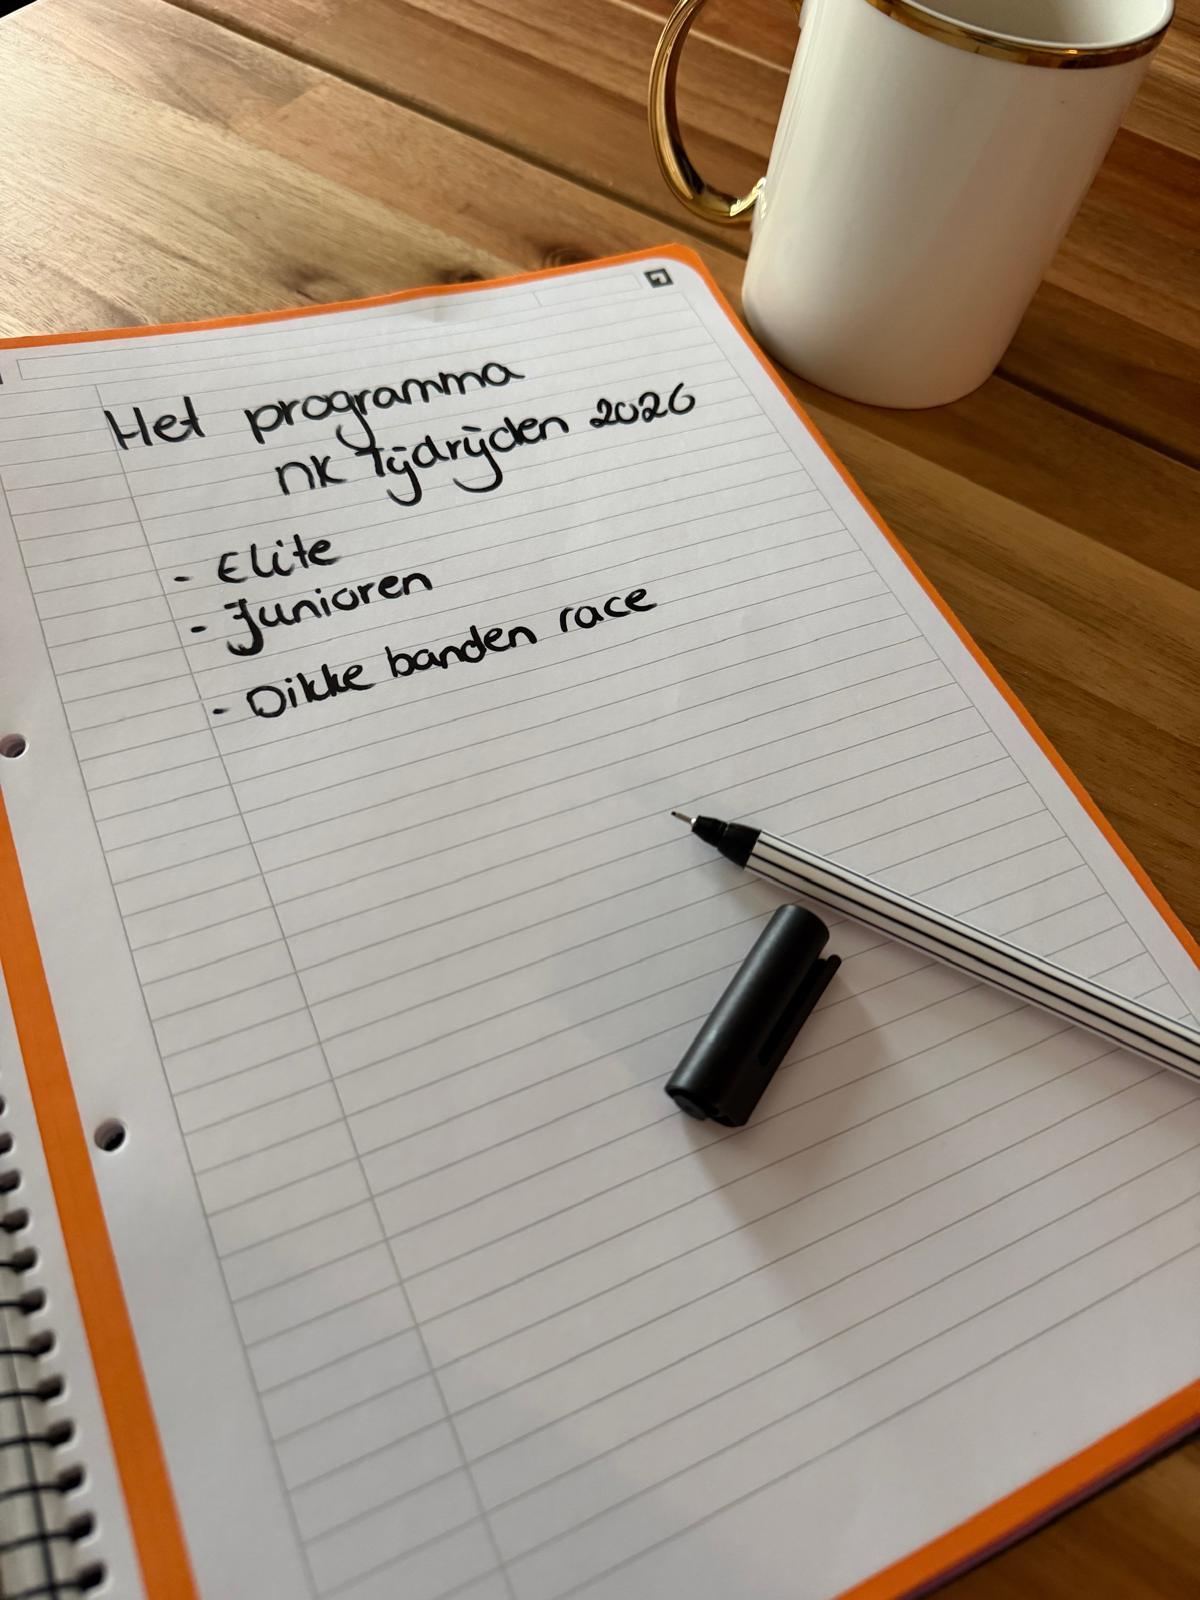 Het programma
NK Tijdrijden 2026
- Elite
- Junioren
- Dikke banden race